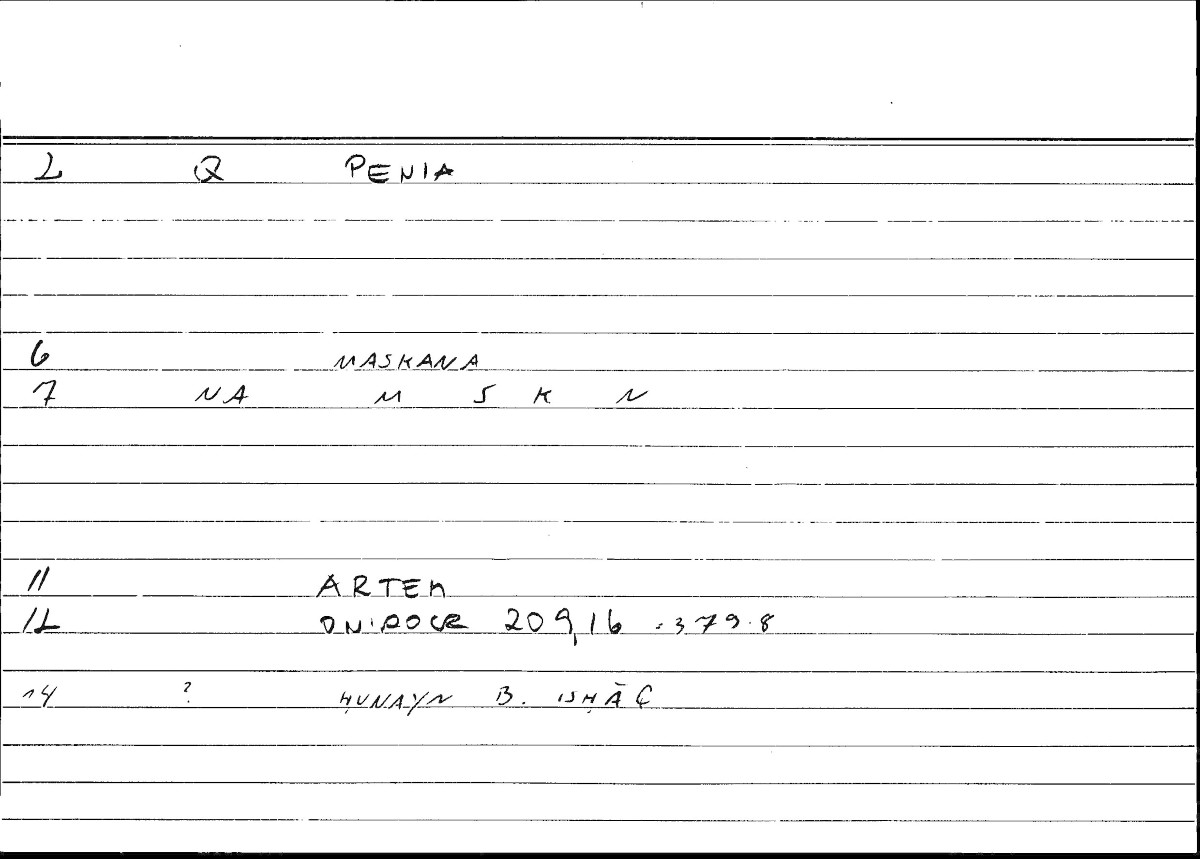 2 Q PENIA
6 MASKANA
7 NA M S K N
11 ARTEM
12 ONIROCR 209,16 = 379.8
14 ? ḤUNAYN B. ISḤĀQ